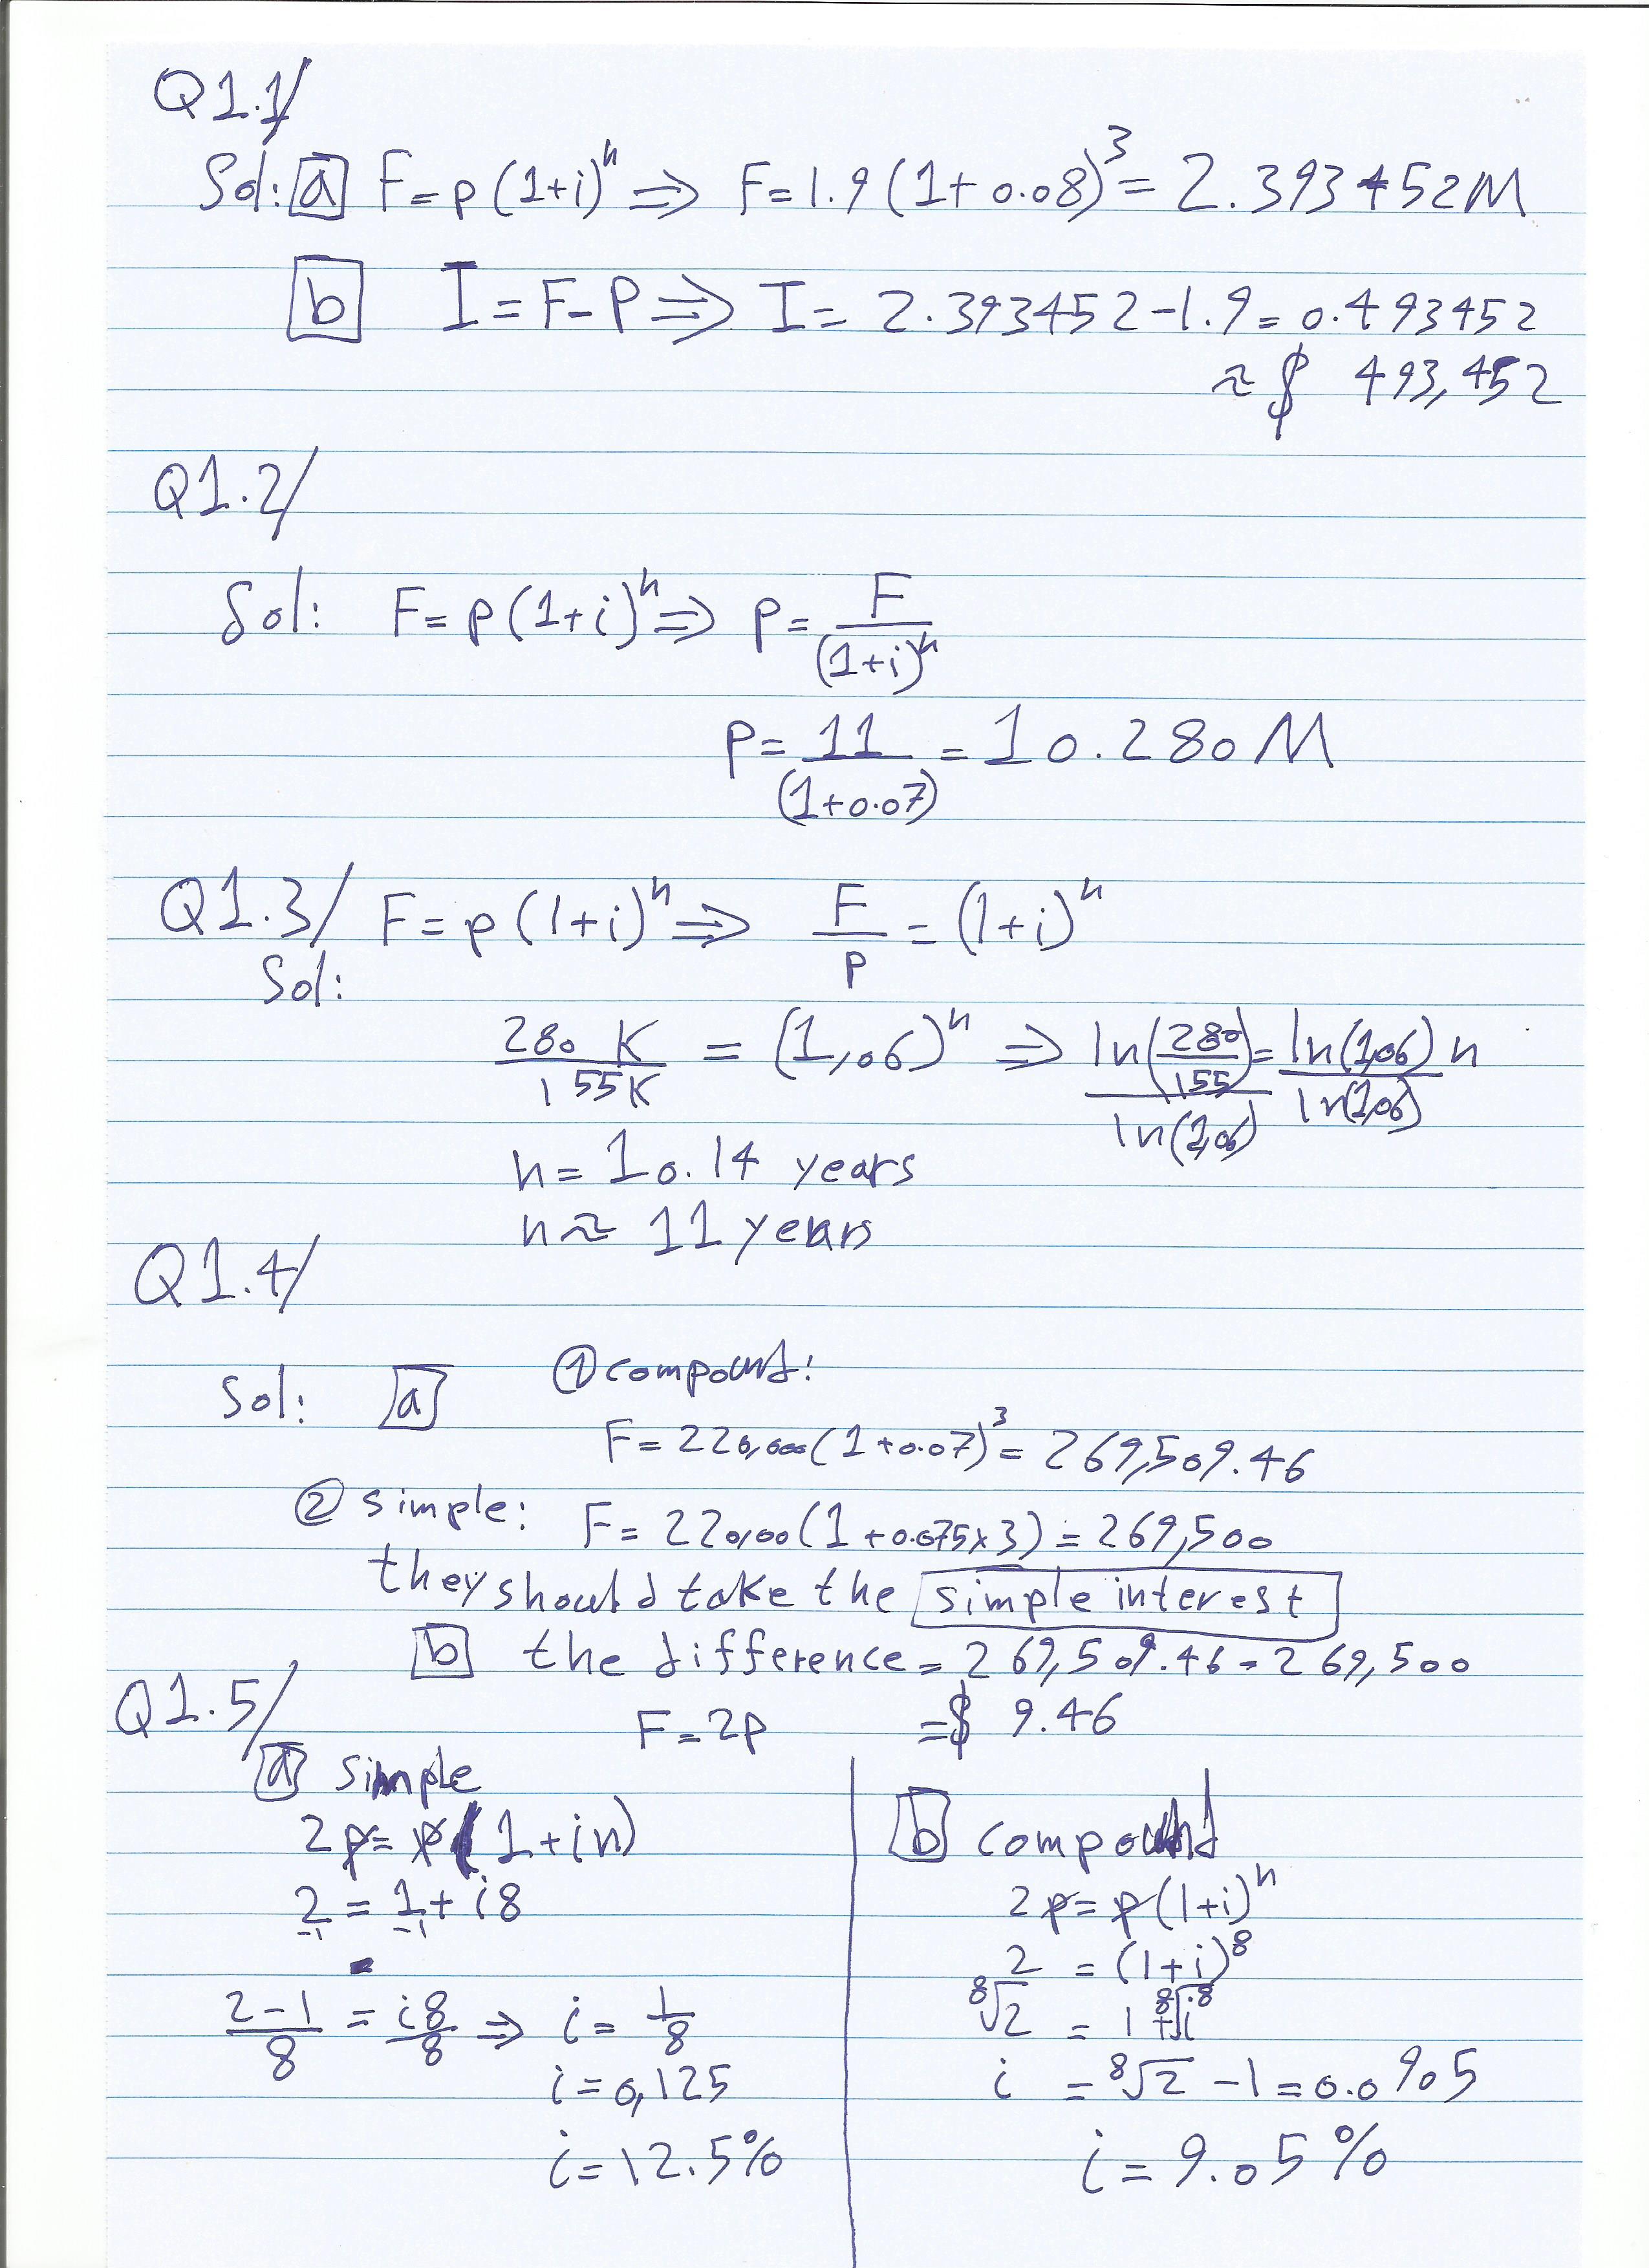 Q1.1/
Sol: a F=p(1+i)^n ⇒ F=1.9(1+0.08)^3= 2.393452M
b I=F-P ⇒ I= 2.393452-1.9=0.493452
≈ $ 493,452
Q1.2/
Sol: F=p(1+i)^n ⇒ P= F/(1+i)^n
P= 11/(1+0.07) = 10.280M
Q1.3/ F=p(1+i)^n ⇒ F/P = (1+i)^n
Sol:
280 K/155K = (1,06)^n ⇒ ln(280/155)/ln(1,06) = ln(1,06)n/ln(1,06)
n= 10.14 years
n≈ 11 years
Q1.4/
① compound:
Sol: a
F= 220,000(1+0.07)^3= 269,509.46
② simple: F= 220,00(1+0.075x3)=269,500
they should take the simple interest
b the difference= 269,509.46-269,500
Q1.5/ F=2p =$ 9.46
a simple
2p= p(1+in)
2 = 1 + i8
-1 -1
2-1/8 = i8/8 ⇒ i= 1/8
i=0,125
i=12.5%
b compound
2p=p(1+i)^n
2 = (1+i)^8
⁸√2 = 1+⁸√i^8
i = ⁸√2 -1=0.0905
i=9.05%